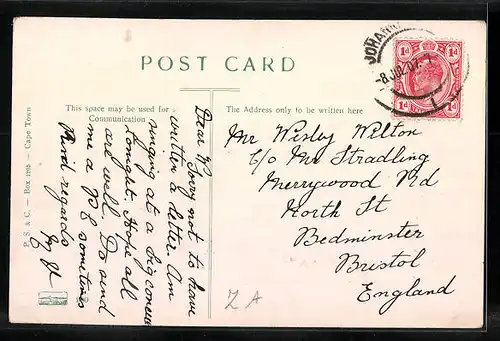 POST CARD
This space may be used for
Communication
The Address only to be written here
P. S. & C. — Box 1269 — Cape Town
Dear W. Sorry not to have
written a letter. Am
singing at a big concert
tonight. Hope all
are well. Do send
me a PC sometimes
Kind regards
Mr Wesley Wilton
C/o Mr Stradling
Merrywood Rd
North St
Bedminster
Bristol
England
JOHANN
8 JU 07
1d 1d
1d 1d
Z A